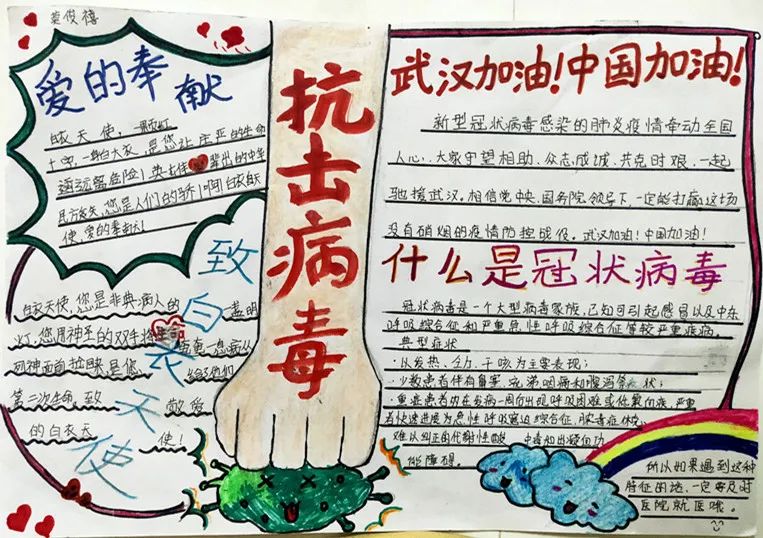 爱的奉献
白衣天使，一颗
一身白大衣，是您让庄严的生命
远离危险！
致白衣天使
白衣天使，您是非典病人的
灯，您用神圣的双手将生命
第二次生命，致敬爱
的白衣天使！
抗击病毒
武汉加油！中国加油！
新型冠状病毒感染的肺炎疫情牵动全国
人心，大家守望相助、众志成诚、共克时艰，一起
驰援武汉。相信党中央、国务院领导下，一定能打赢这场
没有硝烟的疫情防控战役。武汉加油！中国加油！
什么是冠状病毒
冠状病毒是一个大型病毒家族，已知可引起感冒以及中东
呼吸综合征和严重急性呼吸综合征等较严重疾病。
典型症状
·以发热、乏力、干咳为主要表现；
·少数患者伴有鼻塞、流涕、咽痛和腹泻等症状；
·重症患者多在发病一周后出现呼吸困难或低氧血症，严重
者快速进展为急性呼吸窘迫综合征、脓毒症休克、
难以纠正的代谢性酸中毒和出凝血功
能障碍。
所以如果遇到这种
特征的话，一定要及时
医院就医哦。